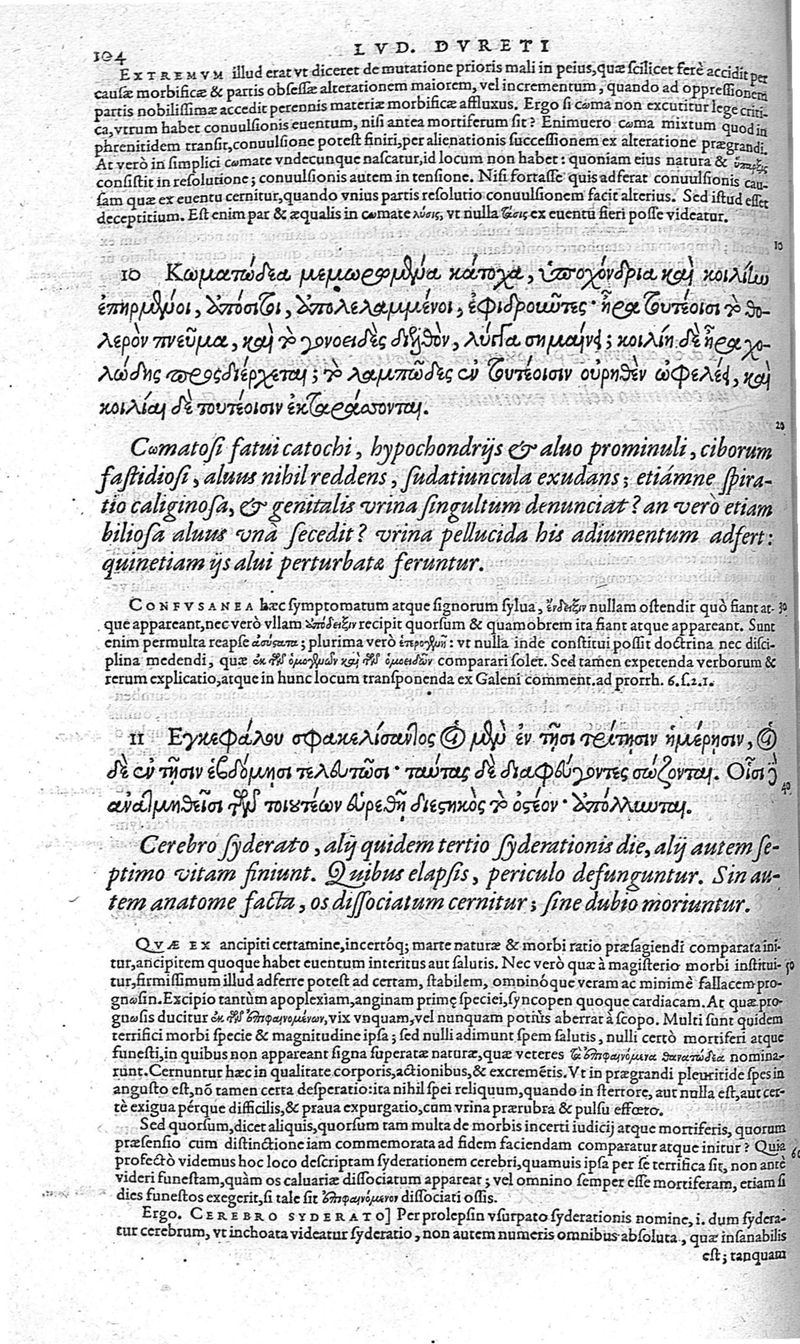 104
LVD. DVRETI
EXTREMVM illud erat vt diceret de mutatione prioris mali in peius, quæ scilicet ferè accidit per
causæ morbificæ & partis obsessæ alterationem maiorem, vel incrementum, quando ad oppressionem
partis nobilissimæ accedit perennis materiæ morbificæ affluxus. Ergo si cωma non excutitur lege criti-
ca, vtrum habet conuulsionis euentum, nisi antea mortiferum sit? Enimuero cωma mixtum quod in
phrenitidem transit, conuulsione potest finiri, per alienationis successionem ex alteratione prægrandi.
At verò in simplici cωmate vndecunque nascatur, id locum non habet: quoniam eius natura & ὕπαρξις
consistit in resolutione; conuulsionis autem in tensione. Nisi fortasse quis adferat conuulsionis cau-
sam quæ ex euentu cernitur, quando vnius partis resolutio conuulsionem facit alterius. Sed istud esset
deceptitium. Est enim par & æqualis in cωmate λύσις, vt nulla τάσις ex euentu fieri posse videatur.
10
10 Κωματώδεα μεμωρωμένα κάτοχα, ὑποχόνδρια καὶ κοιλίην
ἐπηρμένοι, ἀπόσιτοι, ἀπολελαμμένοι, ἐφιδρωῶντες· ἦρα τουτέοισι τὸ θο-
λερὸν πνεῦμα, καὶ τὸ γονοειδὲς διελθὸν, λύγγα σημαίνει; κοιλίη δὲ ἦρα χο-
λώδης προσδιέρχεται; τὸ λαμπῶδες ἐν τουτέοισιν οὐρηθὲν ὠφελέει, καὶ
κοιλίαι δὲ τουτέοισιν ἐκταράσσονται.
20
Cωmatosi fatui catochi, hypochondrijs & aluo prominuli, ciborum
fastidiosi, aluus nihil reddens, sudatiuncula exudans; etiámne spira-
tio caliginosa, & genitalis vrina singultum denunciat? an verò etiam
biliosa aluus vnà secedit? vrina pellucida his adiumentum adfert:
quinetiam ijs alui perturbatæ feruntur.
CONFVSANEA hæc symptomatum atque signorum sylua, ἔνδειξιν nullam ostendit quò fiant at- 30
que appareant, nec verò vllam ἀπόδειξιν recipit quorsum & quamobrem ita fiant atque appareant. Sunt
enim permulta reapse ἀσύστατα; plurima verò ἑτερογενῆ: vt nulla inde constitui possit doctrina nec disci-
plina medendi, quæ ἐκ τῶν ὁμογενῶν καὶ τῶν ὁμοειδῶν comparari solet. Sed tamen expetenda verborum &
rerum explicatio, atque in hunc locum transponenda ex Galeni comment. ad prorrh. 6. s. 2. 1.
11 Εγκεφάλου σφακελίσαντος οἱ μὲν ἐν τῇσι τρίτησιν ἡμέρησιν, οἱ
δὲ ἐν τῇσιν ἑβδόμῃσι τελευτῶσι· ταύτας δὲ διαφεύγοντες σώζονται. Οἷσι δ'
40
ἀνατμηθεῖσι τῶν τοιουτέων εὑρεθῇ διεστηκὸς τὸ ὀστέον· ἀπόλλυνται.
Cerebro syderato, alij quidem tertio syderationis die, alij autem se-
ptimo vitam finiunt. Quibus elapsis, periculo defunguntur. Sin au-
tem anatome facta, os dissociatum cernitur; sine dubio moriuntur.
QVÆ EX ancipiti certamine, incertóq; marte naturæ & morbi ratio præsagiendi comparata ini-
tur, ancipitem quoque habet euentum interitus aut salutis. Nec verò quæ à magisterio morbi institui- 50
tur, firmissimum illud adferre potest ad certam, stabilem, omninóque veram ac minimè fallacem pro-
gnωsin. Excipio tantùm apoplexiam, anginam primę speciei, syncopen quoque cardiacam. At quæ pro-
gnωsis ducitur ἐκ τῶν ἐπιφαινομένων, vix vnquam, vel nunquam potiùs aberrat à scopo. Multi sunt quidem
terrifici morbi specie & magnitudine ipsa; sed nulli adimunt spem salutis, nulli certò mortiferi atque
funesti, in quibus non appareant signa superatæ naturæ, quæ veteres τὰ ἐπιφαινόμενα θανατώδεα nomina-
runt. Cernuntur hæc in qualitate corporis, actionibus, & excremētis. Vt in prægrandi pleuritide spes in
angusto est, nō tamen certa desperatio: ita nihil spei reliquum, quando in stertore, aut nulla est, aut cer-
tè exigua pérque difficilis, & praua expurgatio, cum vrina prærubra & pulsu effœto.
Sed quorsum, dicet aliquis, quorsum tam multa de morbis incerti iudicij atque mortiferis, quorum
præsensio cum distinctione iam commemorata ad fidem faciendam comparatur atque initur? Quia
profectò videmus hoc loco descriptam syderationem cerebri, quamuis ipsa per sé terrifica sit, non antè 60
videri funestam, quàm os caluariæ dissociatum appareat; vel omnino semper esse mortiferam, etiam si
dies funestos exegerit, si tale sit ἐπιφαινόμενον dissociati ossis.
Ergo. CEREBRO SYDERATO] Per prolepsin vsurpato syderationis nomine, i. dum sydera-
tur cerebrum, vt inchoata videatur syderatio, non autem numeris omnibus absoluta, quæ insanabilis
est; tanquam